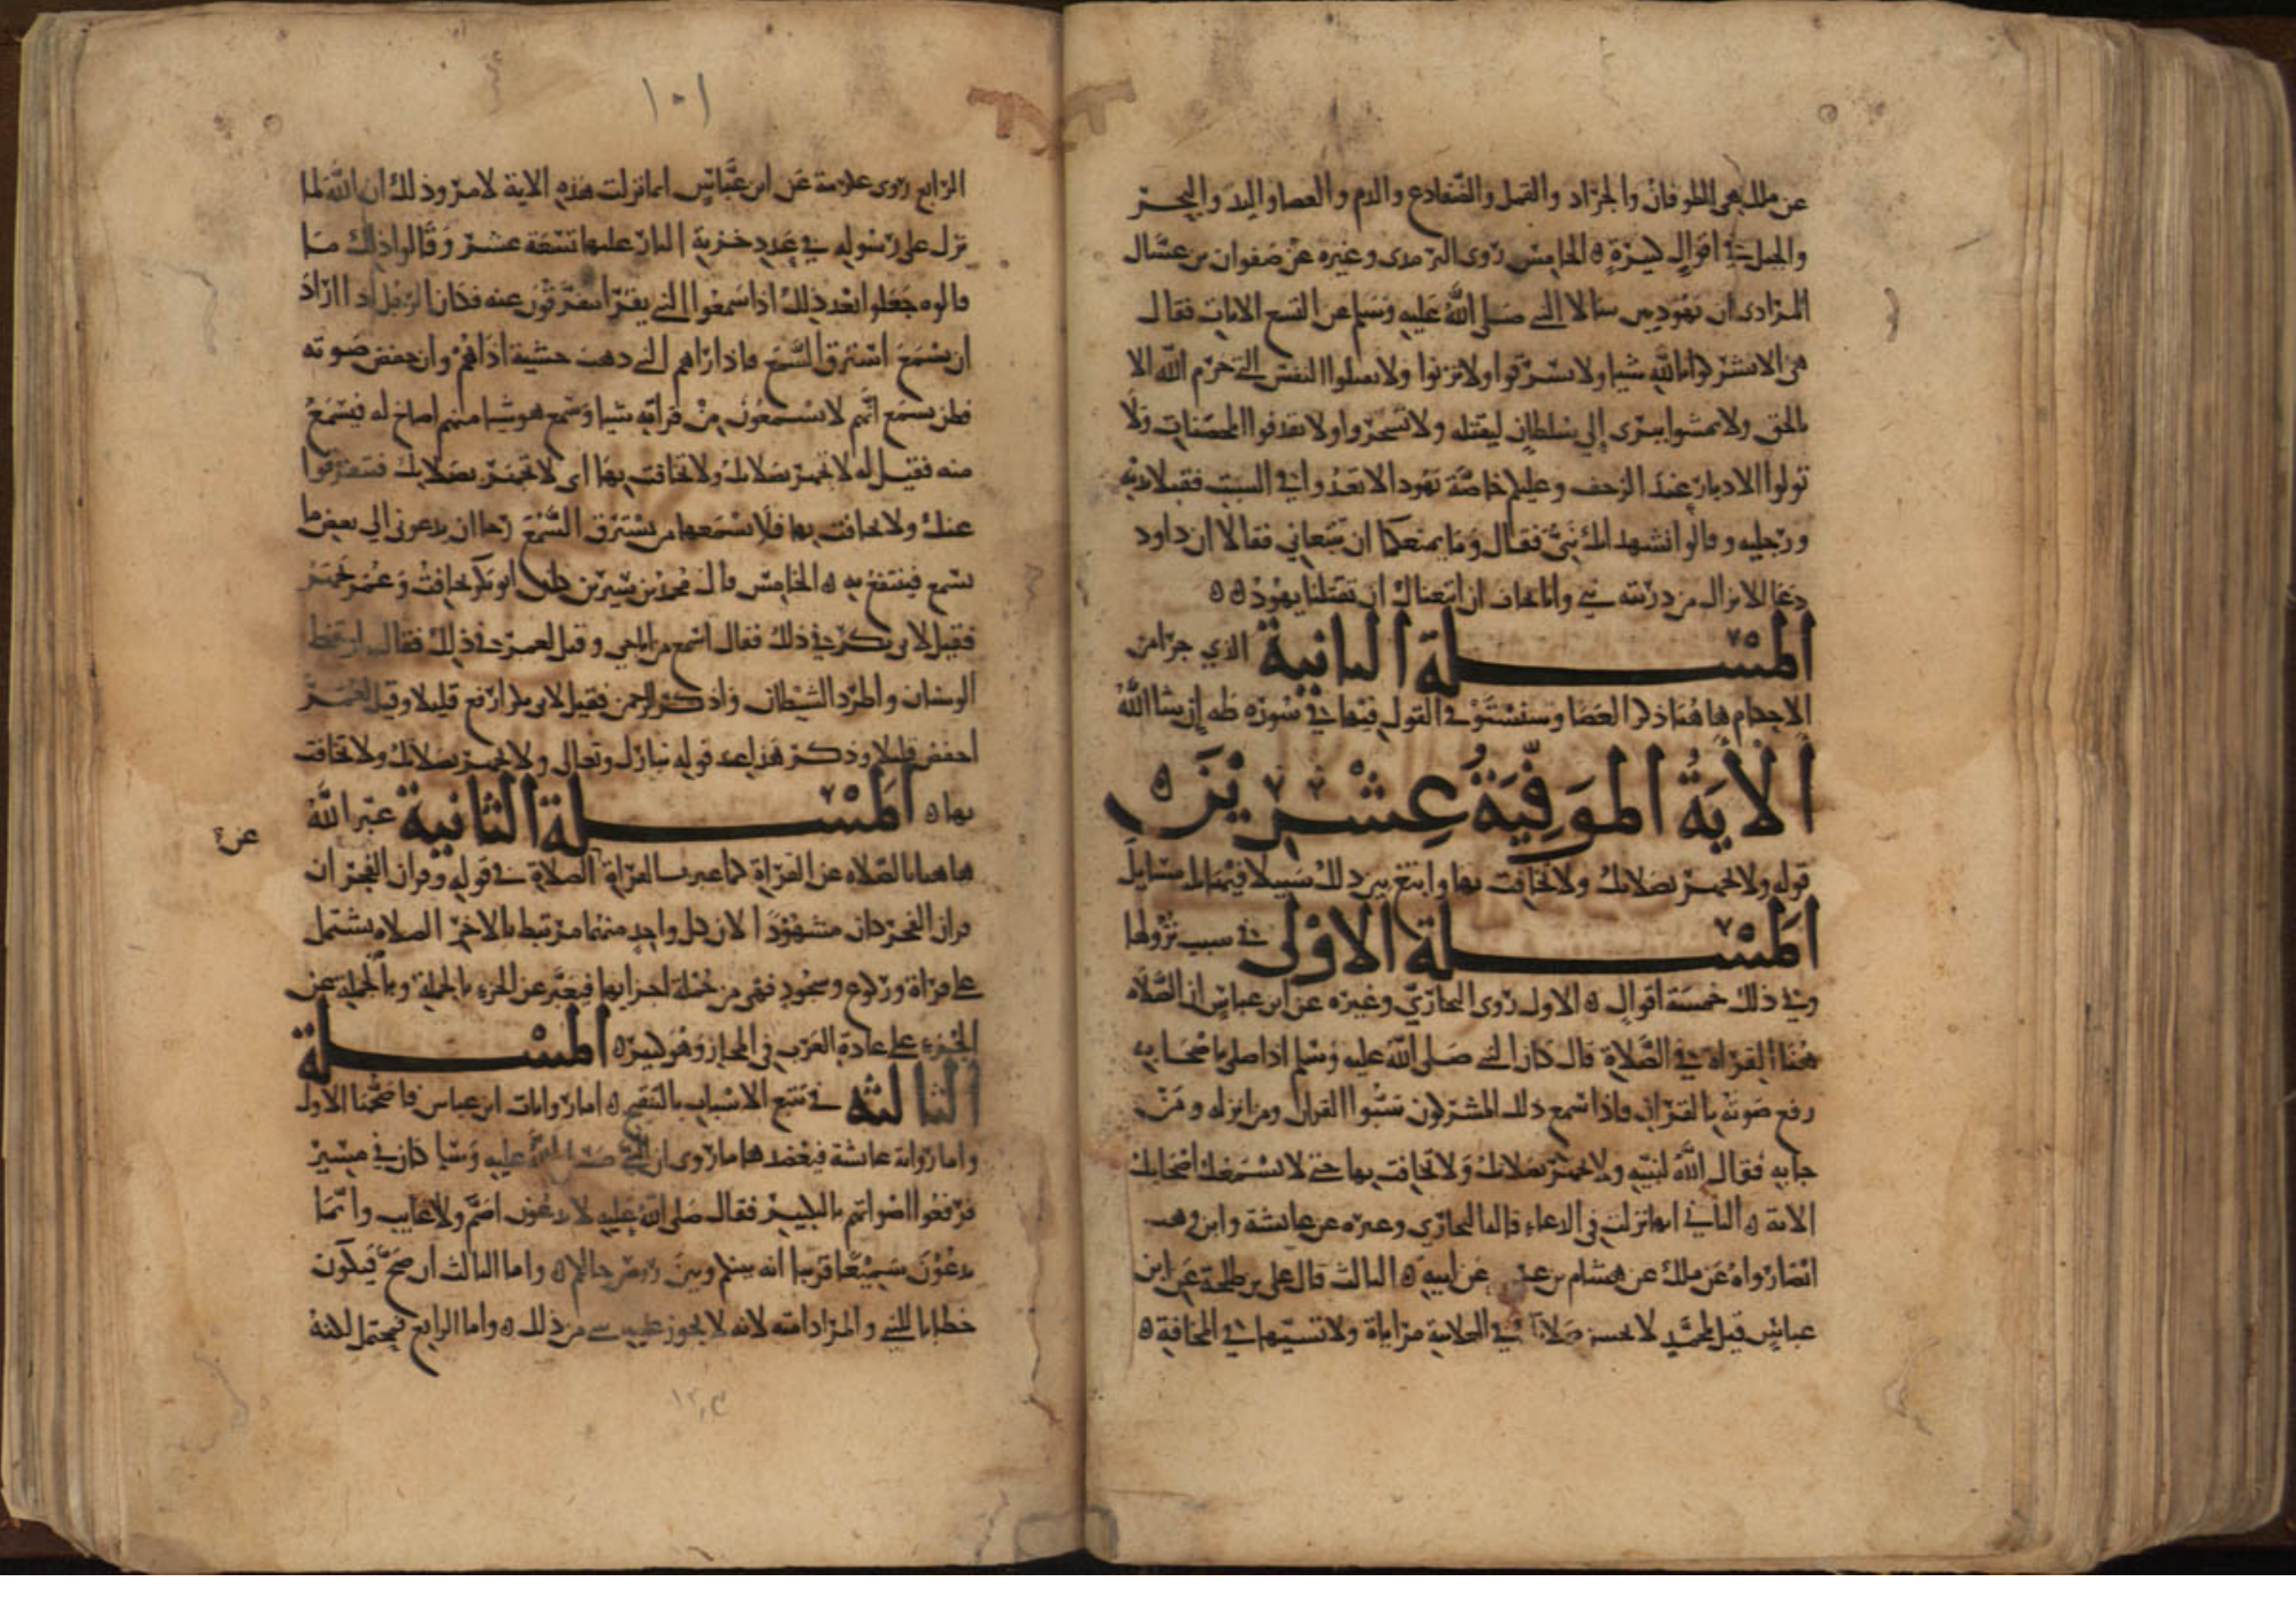 عن ملك هي الطوفان والجراد والقمل والضفادع والدم والعصا واليد والبحر
والجبل في اقوال كثيرة ه الخامس روى الترمذى وغيره عن صفوان بن عسال
المرادى ان يهوديين سالا النبي صلى الله عليه وسلم عن التسع الايات فقال
هي الا تشركوا بالله شيا ولا تسرقوا ولا تزنوا ولا تقتلوا النفس التي حرم الله الا
بالحق ولا تمشوا ببرى إلى سلطان ليقتله ولا تسحروا ولا تقذفوا المحصنات ولا
تولوا الادبار عند الزحف وعليكم خاصة يهود الا تعدوا في السبت فقبلا يديه
ورجليه وقالوا نشهد انك نبي فقال وما يمنعكما ان تتبعاني فقالا ان داود
دعا الا يزال من ذريته نبي وانا نخاف ان اتبعناك ان تقتلنا يهود ه ه
المسلة الثانية الذي جرا من
الاحكام هاهنا ذكر العصا وسنستوفي القول فيها في سورة طه إن شا الله
الآية الموفية عشرين ه
قوله ولا تجهر بصلاتك ولا تخافت بها وابتغ بين ذلك سبيلا فيها مسايل
المسلة الاولى في سبب نزولها
وفي ذلك خمسة اقوال ه الاول روى البخاري وغيره عن ابن عباس ان الصلاة
هنا القراة في الصلاة قال كان النبي صلى الله عليه وسلم اذا صلى باصحابه
رفع صوته بالقران فاذا سمع ذلك المشركون سبوا القران ومن انزله ومن
جا به فقال الله لنبيه ولا تجهر بصلاتك ولا تخافت بها حتى لا تسمعك اصحابك
الاية ه الثاني انها نزلت في الدعاء قالها البخاري وغيره عن عايشة وابن وهب
ايضا رواه عن ملك عن هشام بن عن ابيه ه الثالث قال علي بن طلحة عن ابن
عباس قيل لمحمد لا تحسن صلاتك في العلانية مراياة ولا تسيها في المخافة ه
١٠١
الرابع روى عكرمة عن ابن عباس انما نزلت هذه الاية لامر وذلك ان الله لما
نزل على رسوله في عدد خزنة النار عليها تسعة عشر وقالوا في ذلك ما
قالوه جعلوا بعد ذلك اذا سمعوا النبي يقرا يتفرقون عنه فكان الرجل اذا اراد
ان يسمع استرق السمع فاذا راهم النبي ذهب خشية اذاهم وان خفض صوته
فظن يسمع انهم لا يسمعون من قراته شيا وسمع هو شيا منهم اصاخ له فيسمع
منه فقيل له لا تجهر بصلاتك ولا تخافت بها اى لا تجهر بصلاتك فتتفرقوا
عنك ولا تخافت بها فلا يسمعها من يسترق السمع رجا ان يرعوي الى بعض ما
يسمع فينتفع به ه الخامس قال محمد بن سيرين كان ابو بكر يخافت وعمر يجهر
فقيل لابى بكر في ذلك فقال اسمع من اناجي وقيل لعمر في ذلك فقال اوقظ
الوسنان واطرد الشيطان واذكر الرحمن فقيل لابى بكر ارفع قليلا وقيل لعمر
اخفض قليلا وذكر هذا عند قوله تبارك وتعالى ولا تجهر بصلاتك ولا تخافت
بها ه المسلة الثانية عبر الله
هاهنا بالصلاة عن القراة كما عبر بالقراة عن الصلاة في قوله وقران الفجر ان
قران الفجر كان مشهودا لان كل واحد منهما مرتبط بالاخر الصلاه تشتمل
على قراة وركوع وسجود فهي من جملة اجزايها فيعبر عن الجزء بالجملة وبالجملة عن
الجزء على عادة العرب في المجاز وهو كثير ه المسلة
الثالثة في تتبع الاسباب بالتنقيح ه اما روايات ابن عباس فاصحها الاول
واما رواية عايشة فيعضدها ما روى ان النبي صلى الله عليه وسلم كان في مسير
فرفعوا اصواتهم بالتكبير فقال صلى الله عليه لا تدعون اصم ولا غايبا وانما
تدعون سميعا قريبا انه بينكم وبين روس رحالكم ه واما الثالث ان صح فيكون
خطابا للنبي والمراد امته لانه لا يجوز عليه شي من ذلك ه واما الرابع فيحتمل لكنه